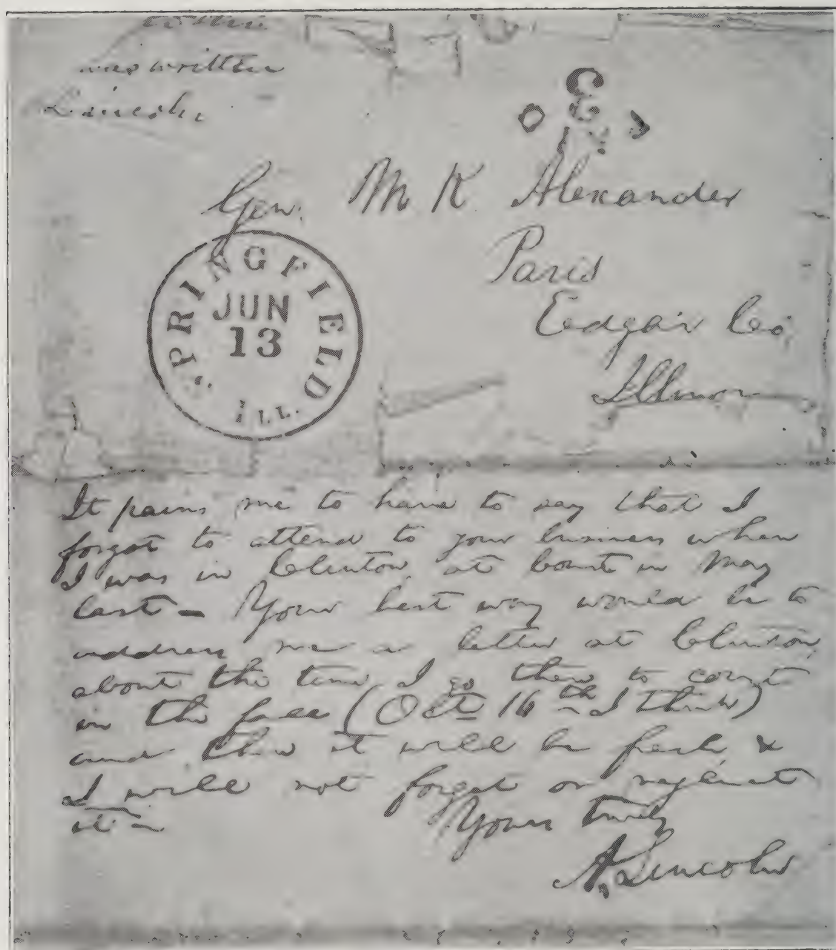 to the
was written
Lincoln
Gen. M K Alexander
Paris
Eedgar Co,
Illinois
SPRINGFIELD
JUN
13
ILL.
It pains me to have to say that I
forgot to attend to your business when
I was in Clinton, at Court in May
last – Your best way would be to
address me a letter at Clinton,
about the time I go there to court
in the fall (Oct 16th I think)
and then it will be fresh &
I will not forget or neglect
it –
Yours truly
A. Lincoln